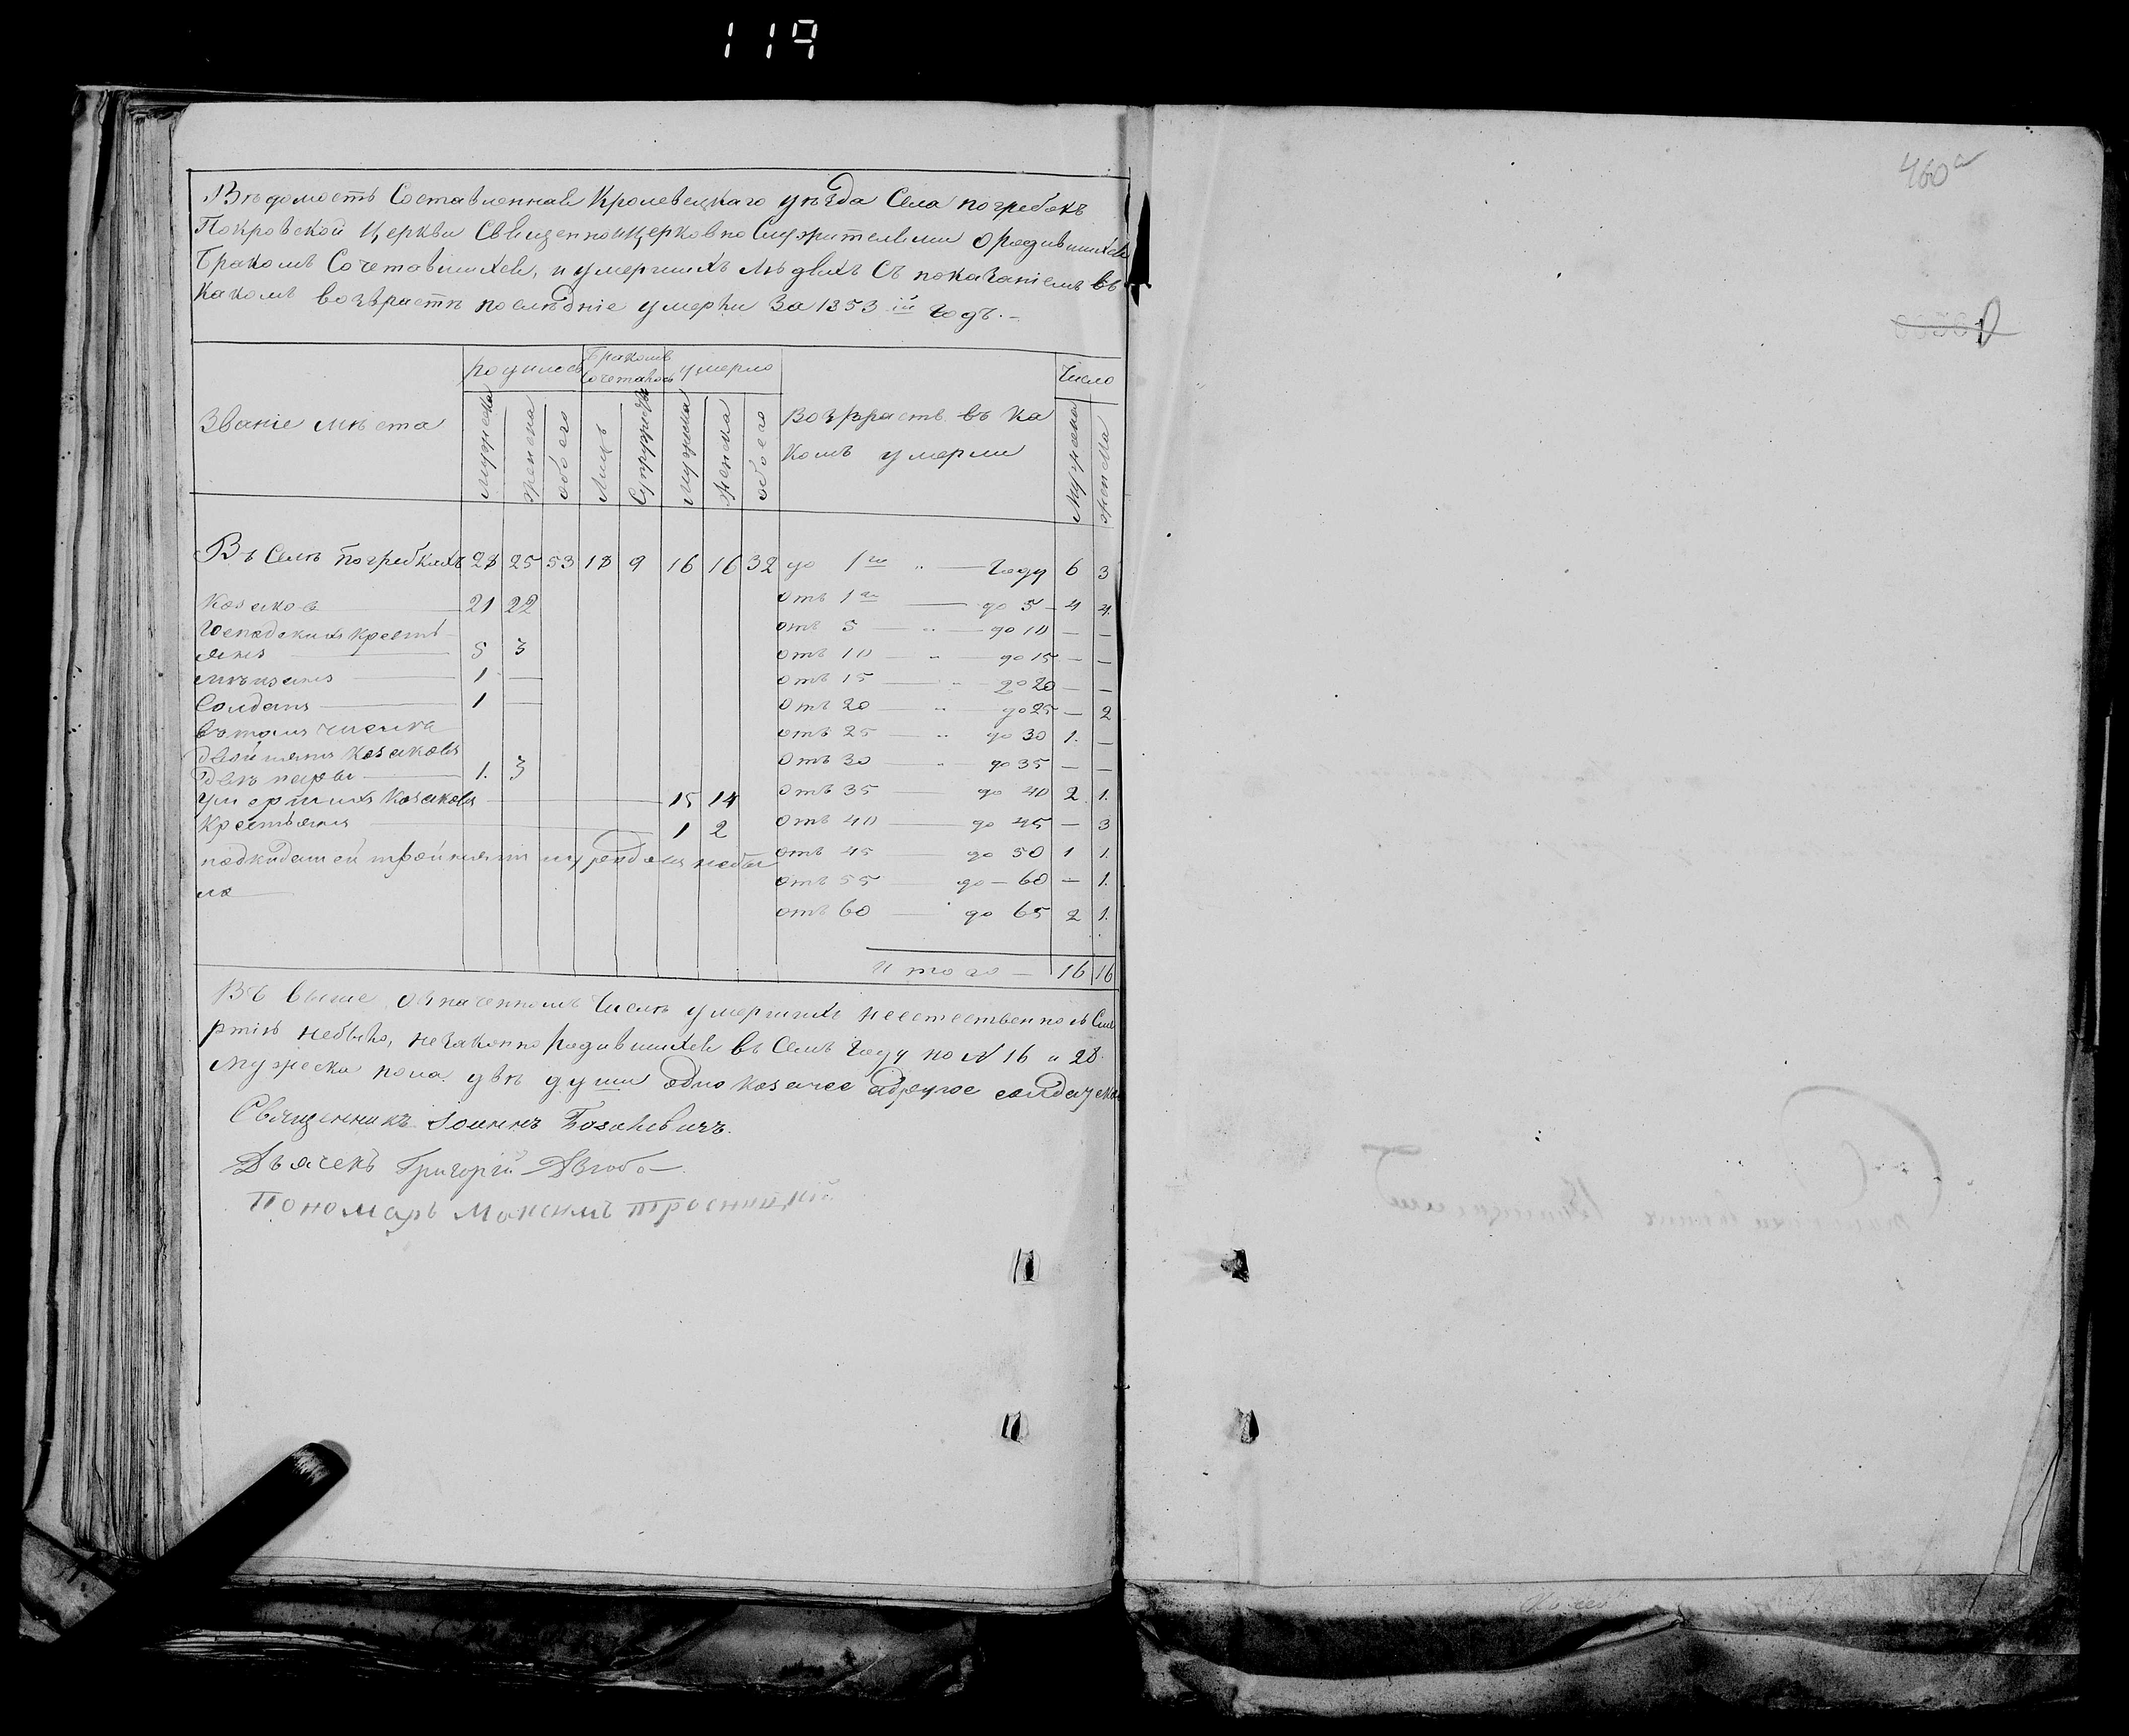 119
460а
Вѣдомость Составленная Кролевецкаго уѣзда Села погребокъ
Покровской Церкви Священноицерковно Служителями о родившихся
Бракомъ Сочетавшихся, и умершихъ людяхъ Съ показаніемъ въ
Какомъ возърастѣ послѣдніе умерли За 1853 ій Годъ.–
Званіе мѣста
родилось
Бракомъ Сочеталось
умерло
Возрастъ въ ка
комъ умерли
Число
Мужеска
женска
обоего
Лицъ
Супружествъ
Мужеска
женска
обоего
Мужеска
женска
Въ Селѣ Погребкахъ 28 25 53 18 9 16 16 32 до 1го — Году 6 3
Козаковъ — 21 22
отъ 1го — до 5 — 4 4.
Господскихъ крестъ
янъ — 5 3
отъ 5 — до 10 — —
отъ 10 — до 15 — —
мѣщанъ — 1 —
отъ 15 — до 20 — —
Солдатъ — 1 —
отъ 20 — до 25 — 2
въ томъ числѣ
отъ 25 — до 30 1. —
двойнятъ козаковъ
двѣ пары — 1. 3
отъ 30 — до 35 — —
умершихъ Козаковъ — 15 14
отъ 35 — до 40 2 1.
Крестьянъ — 1 2
отъ 40 — до 45 — 3
подкидашей тройнятъ
отъ 45 до 50 1 1.
ло
отъ 55 — до — 60 — 1.
отъ 60 — до 65 2 1.
Итого — 16 16
Въ выше означенномъ Числѣ умершихъ неестественною Сме
ртію небыло, незаконно родившихся въ Семъ Году по N 16 и 28.
Мужеска пола двѣ души одно козачее адругое солдатско
Священникъ Іоаннъ
Дьячекъ Григорій Дзюба
Пономарь Максимъ